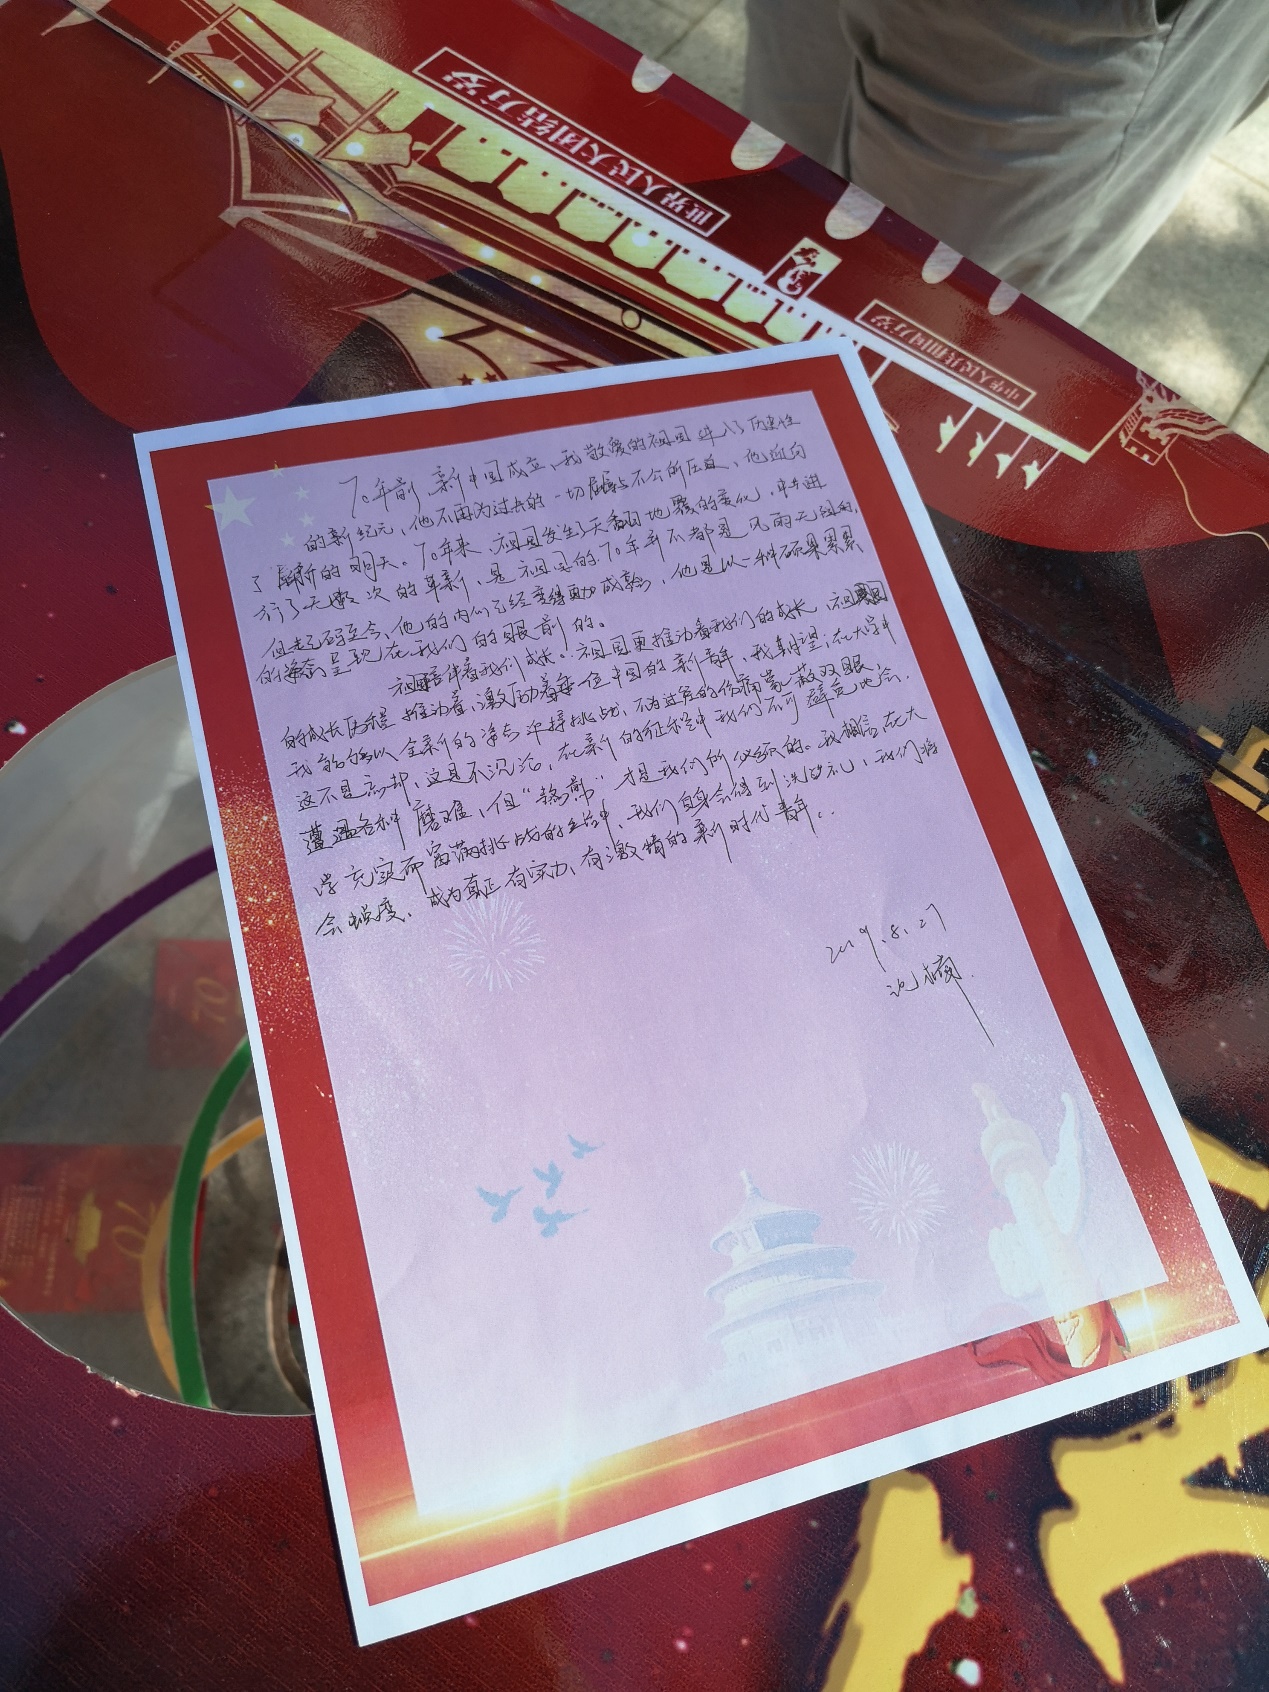 世界人民大团结万岁
中华人民共和国万岁
70年前,新中国成立,我敬爱的祖国进入了历史性
的新纪元,他不再为过去的一切屈辱与不公所压迫,他迎向
了崭新的明天。70年来,祖国发生了天翻地覆的变化,中央进
行了无数次的革新,是祖国的70年并不都是风雨无阻的,
但起码至今,他的内心已经变得更加成熟,他是以一种硕果累累
的姿态呈现在我们的眼前的。
祖国陪伴着我们成长。祖国更推动着我们的成长,祖国
的成长历程推动着、激励着每一位中国的新青年,我期望,在大学中
我能够以全新的姿态迎接挑战,不为过去的伤痛蒙蔽双眼,
这不是忘却,这是不沉沦,在新的征程中我们不可避免地会
遭遇各种磨难,但“锐前”才是我们所必须的。我相信,在大
学充实而富满挑战的生活中,我们自身会得到洗礼,我们将
会蜕变、成为真正有实力、有激情的新时代青年。
2019.8.27
70
70